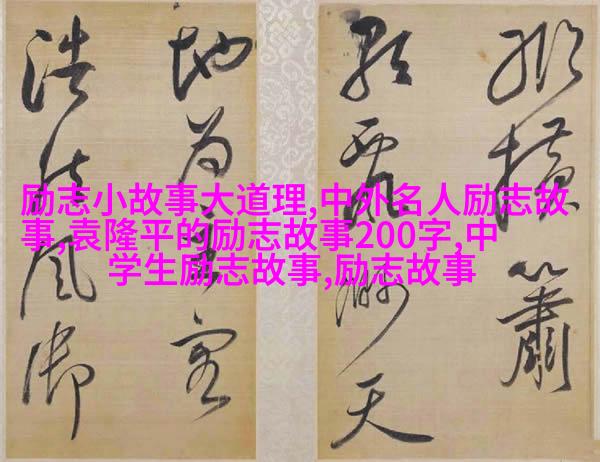 励志小故事大道理,中外名人励志故
事,袁隆平的励志故事200字,中
学生励志故事,励志故事
横簫
天
地为
浩然风御